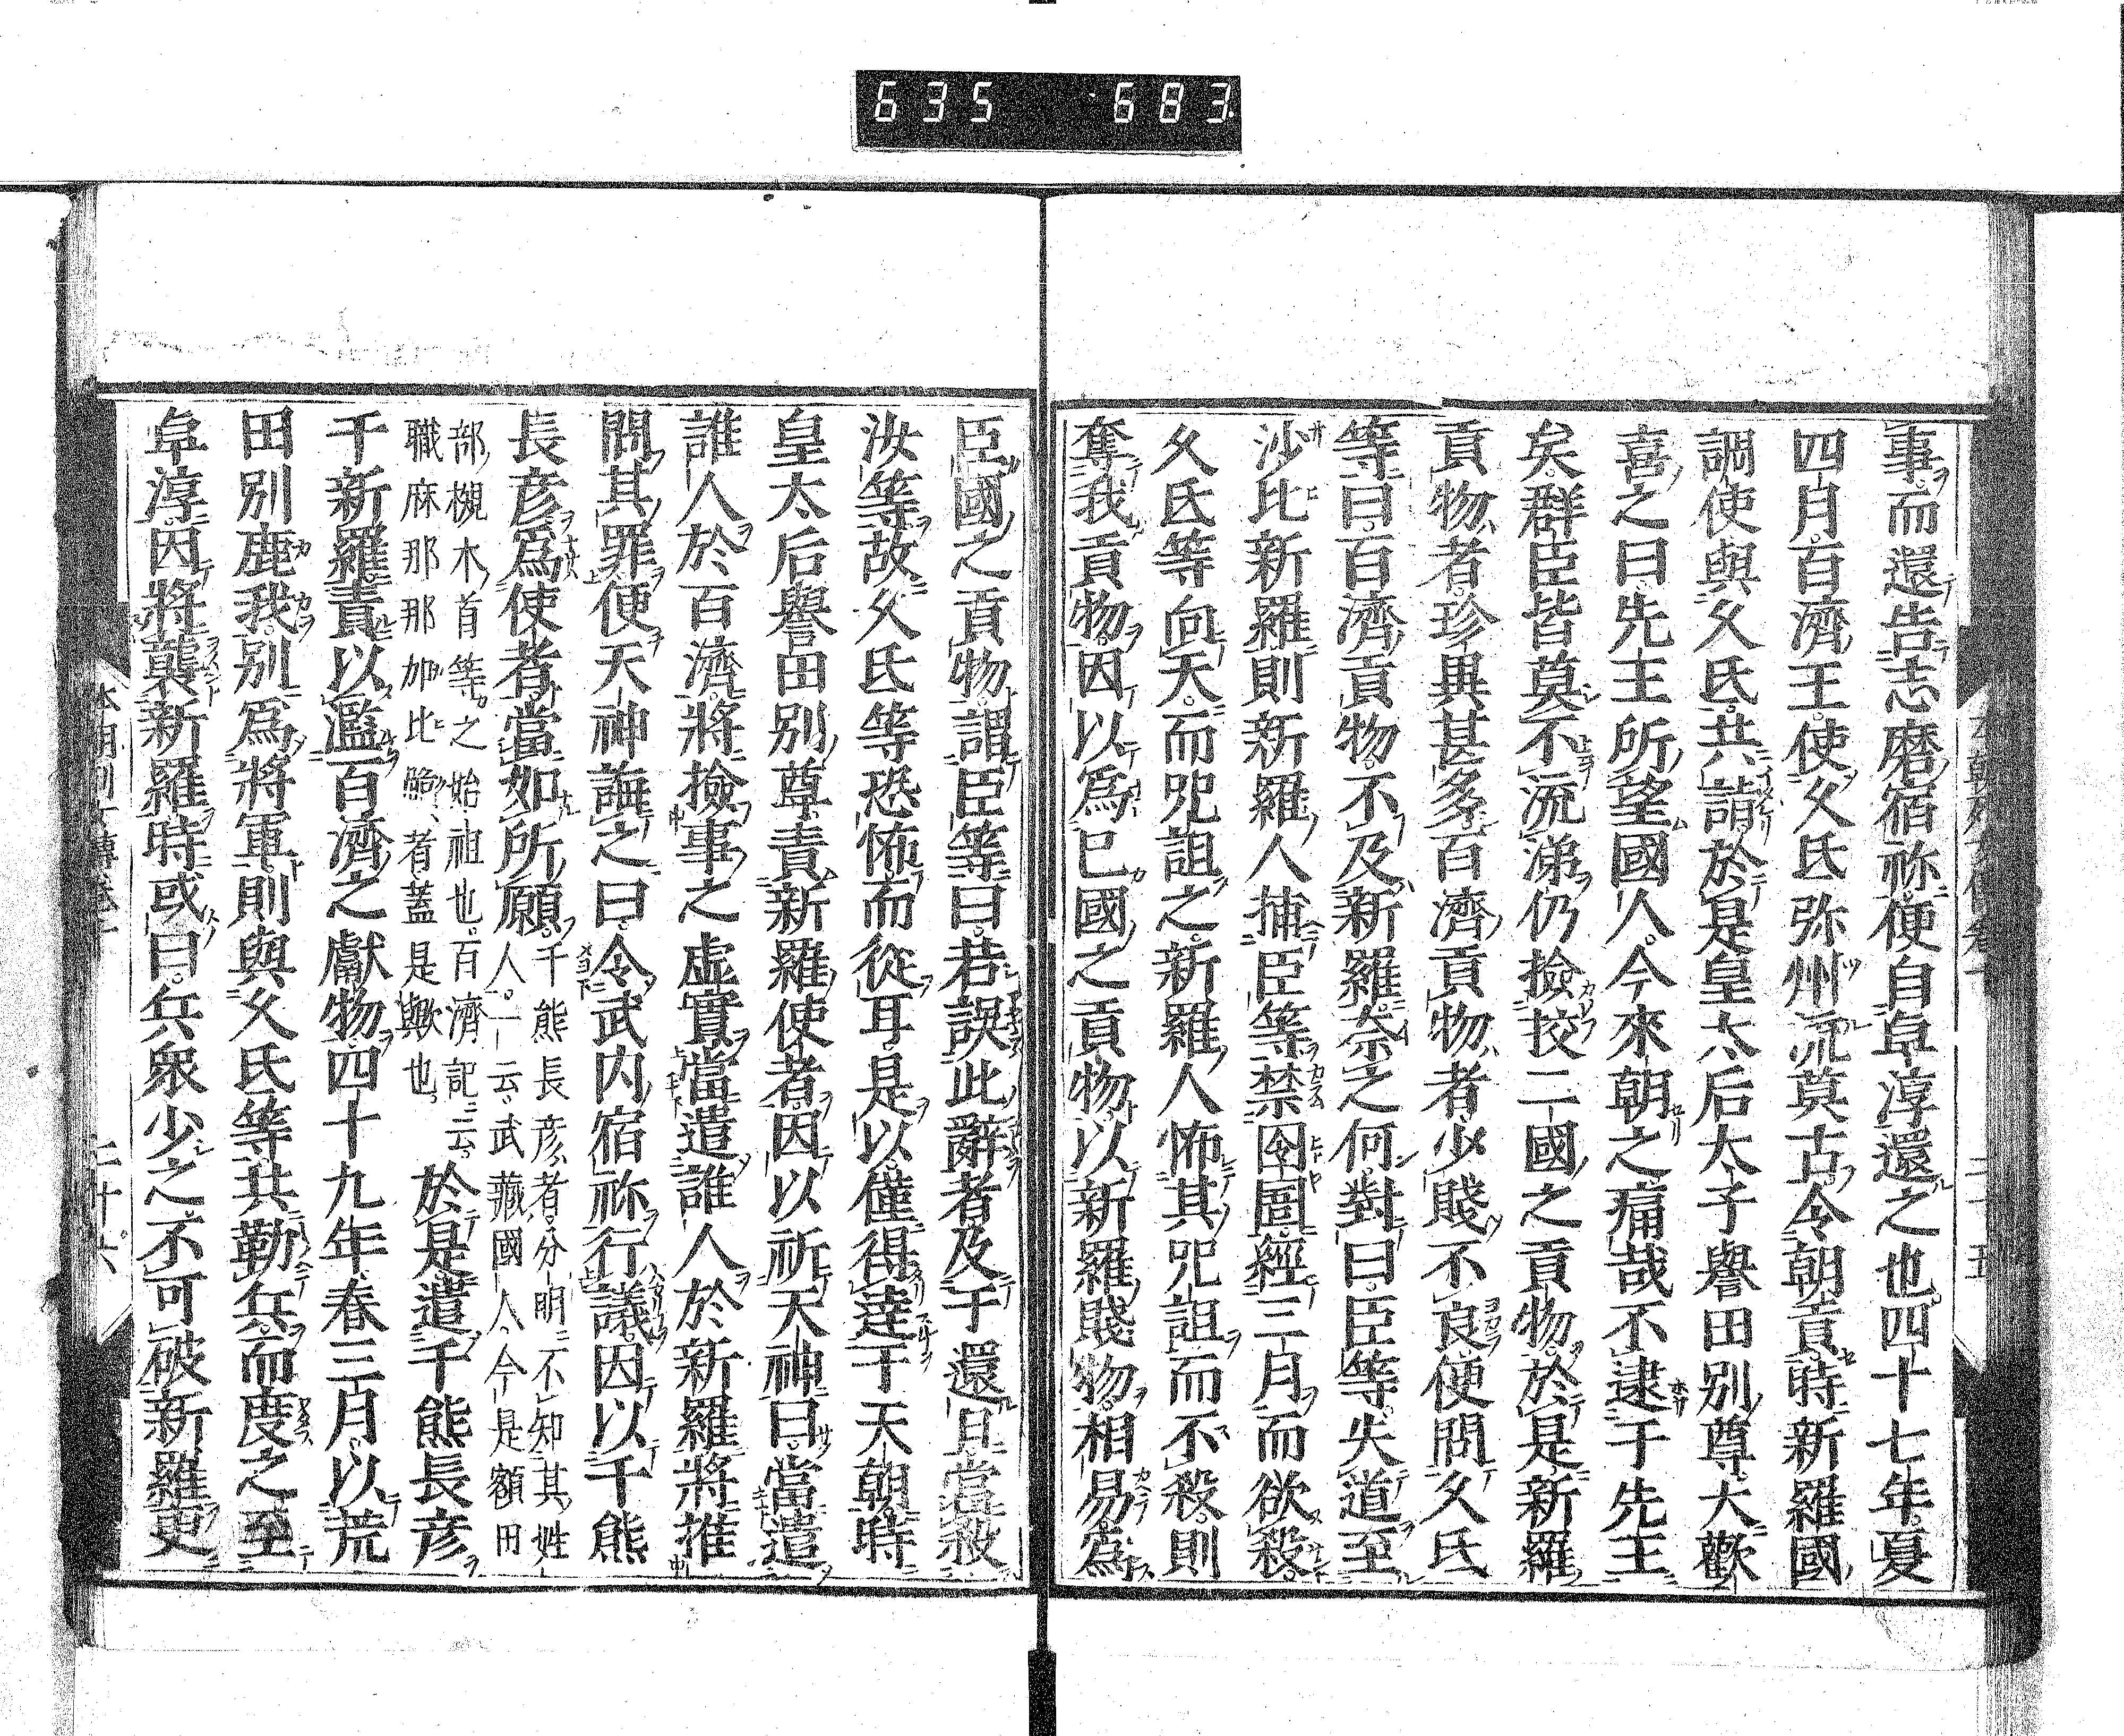 635 683
事而還告志磨宿祢便自卓淳還之也四十七年夏
四月百濟王使久氐弥州流莫古令朝貢時新羅國
調使與久氐共詣於是皇太后太子譽田別尊大歡
喜之曰先王所望國人今來朝之痛哉不逮于先王
矣群臣皆莫不流涕仍撿挍二國之貢物於是新羅
貢物者珍異甚多百濟貢物者少賤不良便問久氐
等曰百濟貢物不及新羅奈之何對曰臣等失道至
沙比新羅則新羅人捕臣等禁囹圄經三月而欲殺
久氐等向天而咒詛之新羅人怖其咒詛而不殺則
奪我貢物因以爲已國之貢物以新羅賤物相易爲
臣國之貢物謂臣等曰若誤此辭者及于還日當殺
汝等故久氐等恐怖而從耳是以僅得達于天朝時
皇太后譽田別尊責新羅使者因以祈天神曰當遣
誰人於百濟將撿事之虛實當遣誰人於新羅將推
問其罪便天神誨之曰令武内宿祢行議因以千熊
長彦爲使者當如所願千熊長彦者分明不知其姓
人一云武藏國人今是額田
部槻木首等之始祖也百濟記云
職麻那那加比跪者蓋是歟也於是遣千熊長彦
于新羅責以濫百濟之獻物四十九年春三月以荒
田別鹿我別爲將軍則與久氐等共勒兵而度之至
卓淳因將襲新羅時或曰兵衆少之不可破新羅更
本朝列女傳卷十
二十六